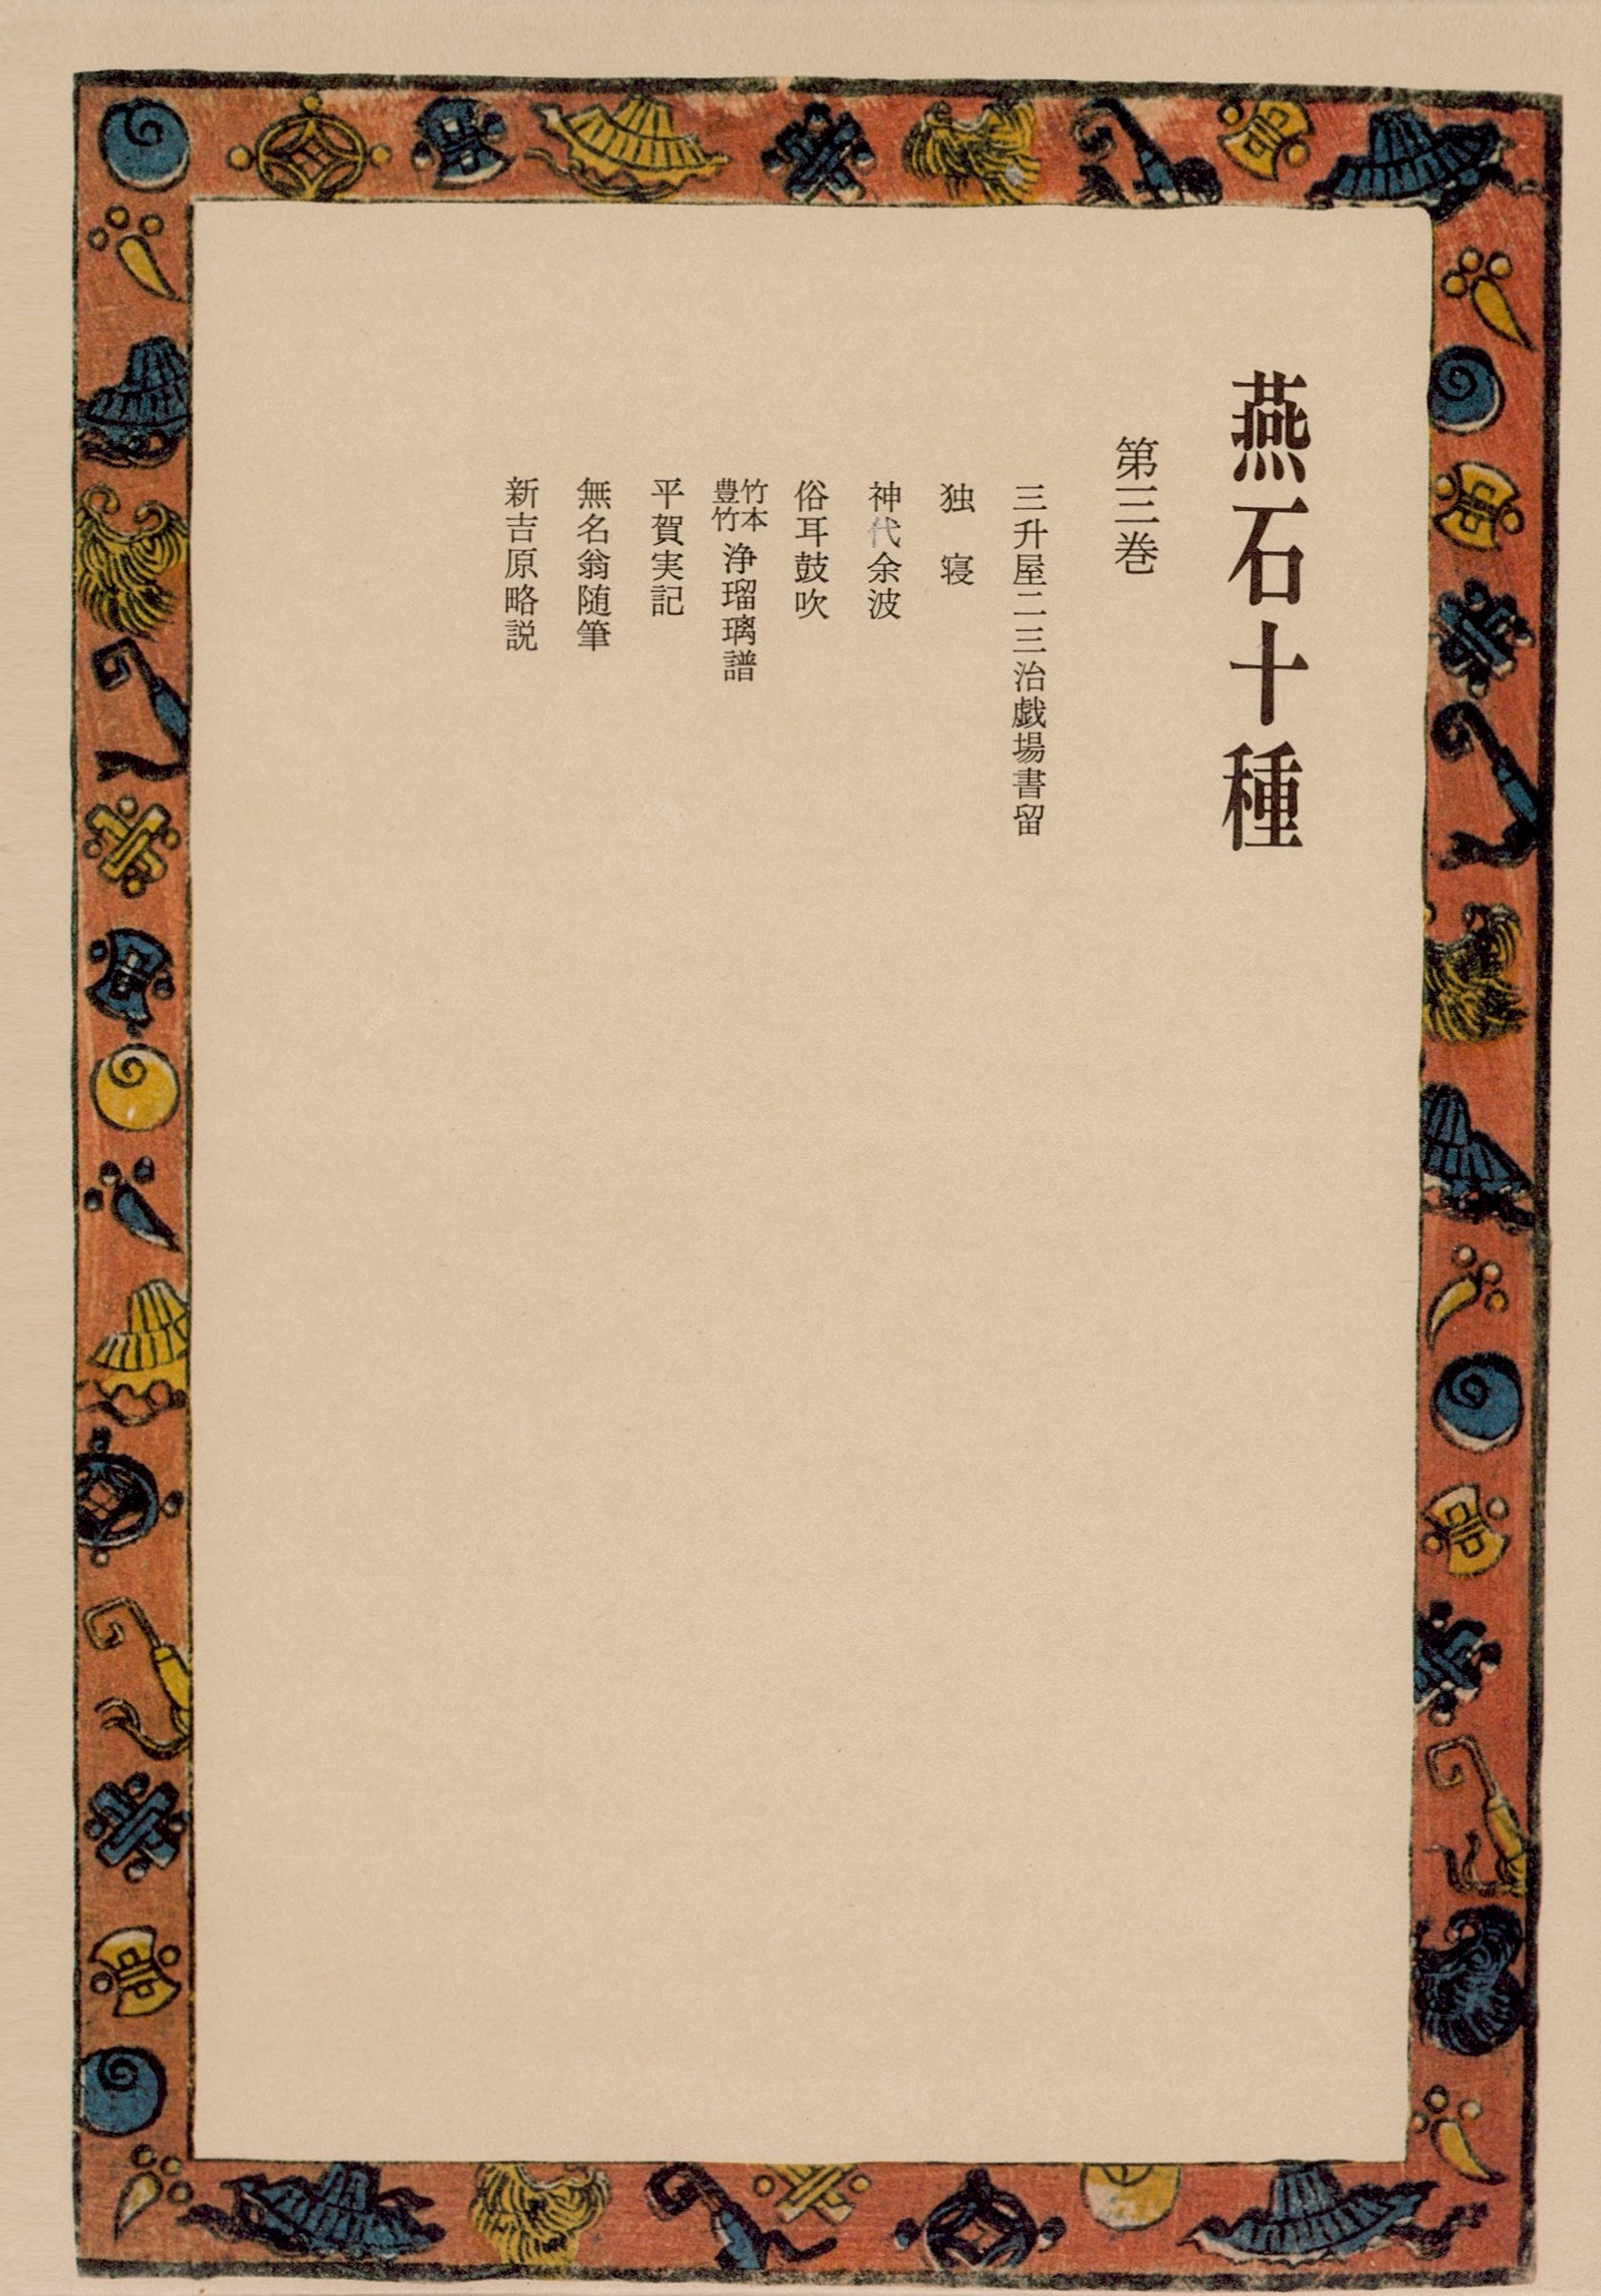 燕石十種
第三巻
三升屋二三治戯場書留
独寝
神代余波
俗耳鼓吹
竹本豊竹浄瑠璃譜
平賀実記
無名翁随筆
新吉原略説